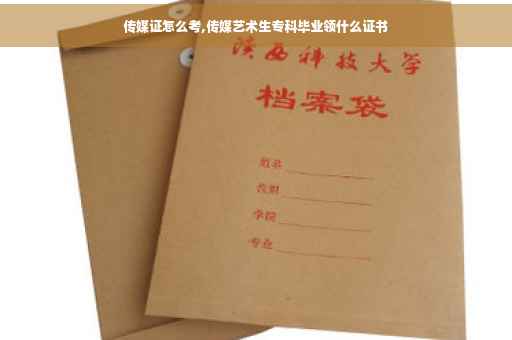 传媒证怎么考,传媒艺术生专科毕业领什么证书
陕西科技大学
档案袋
姓名
学院
专业